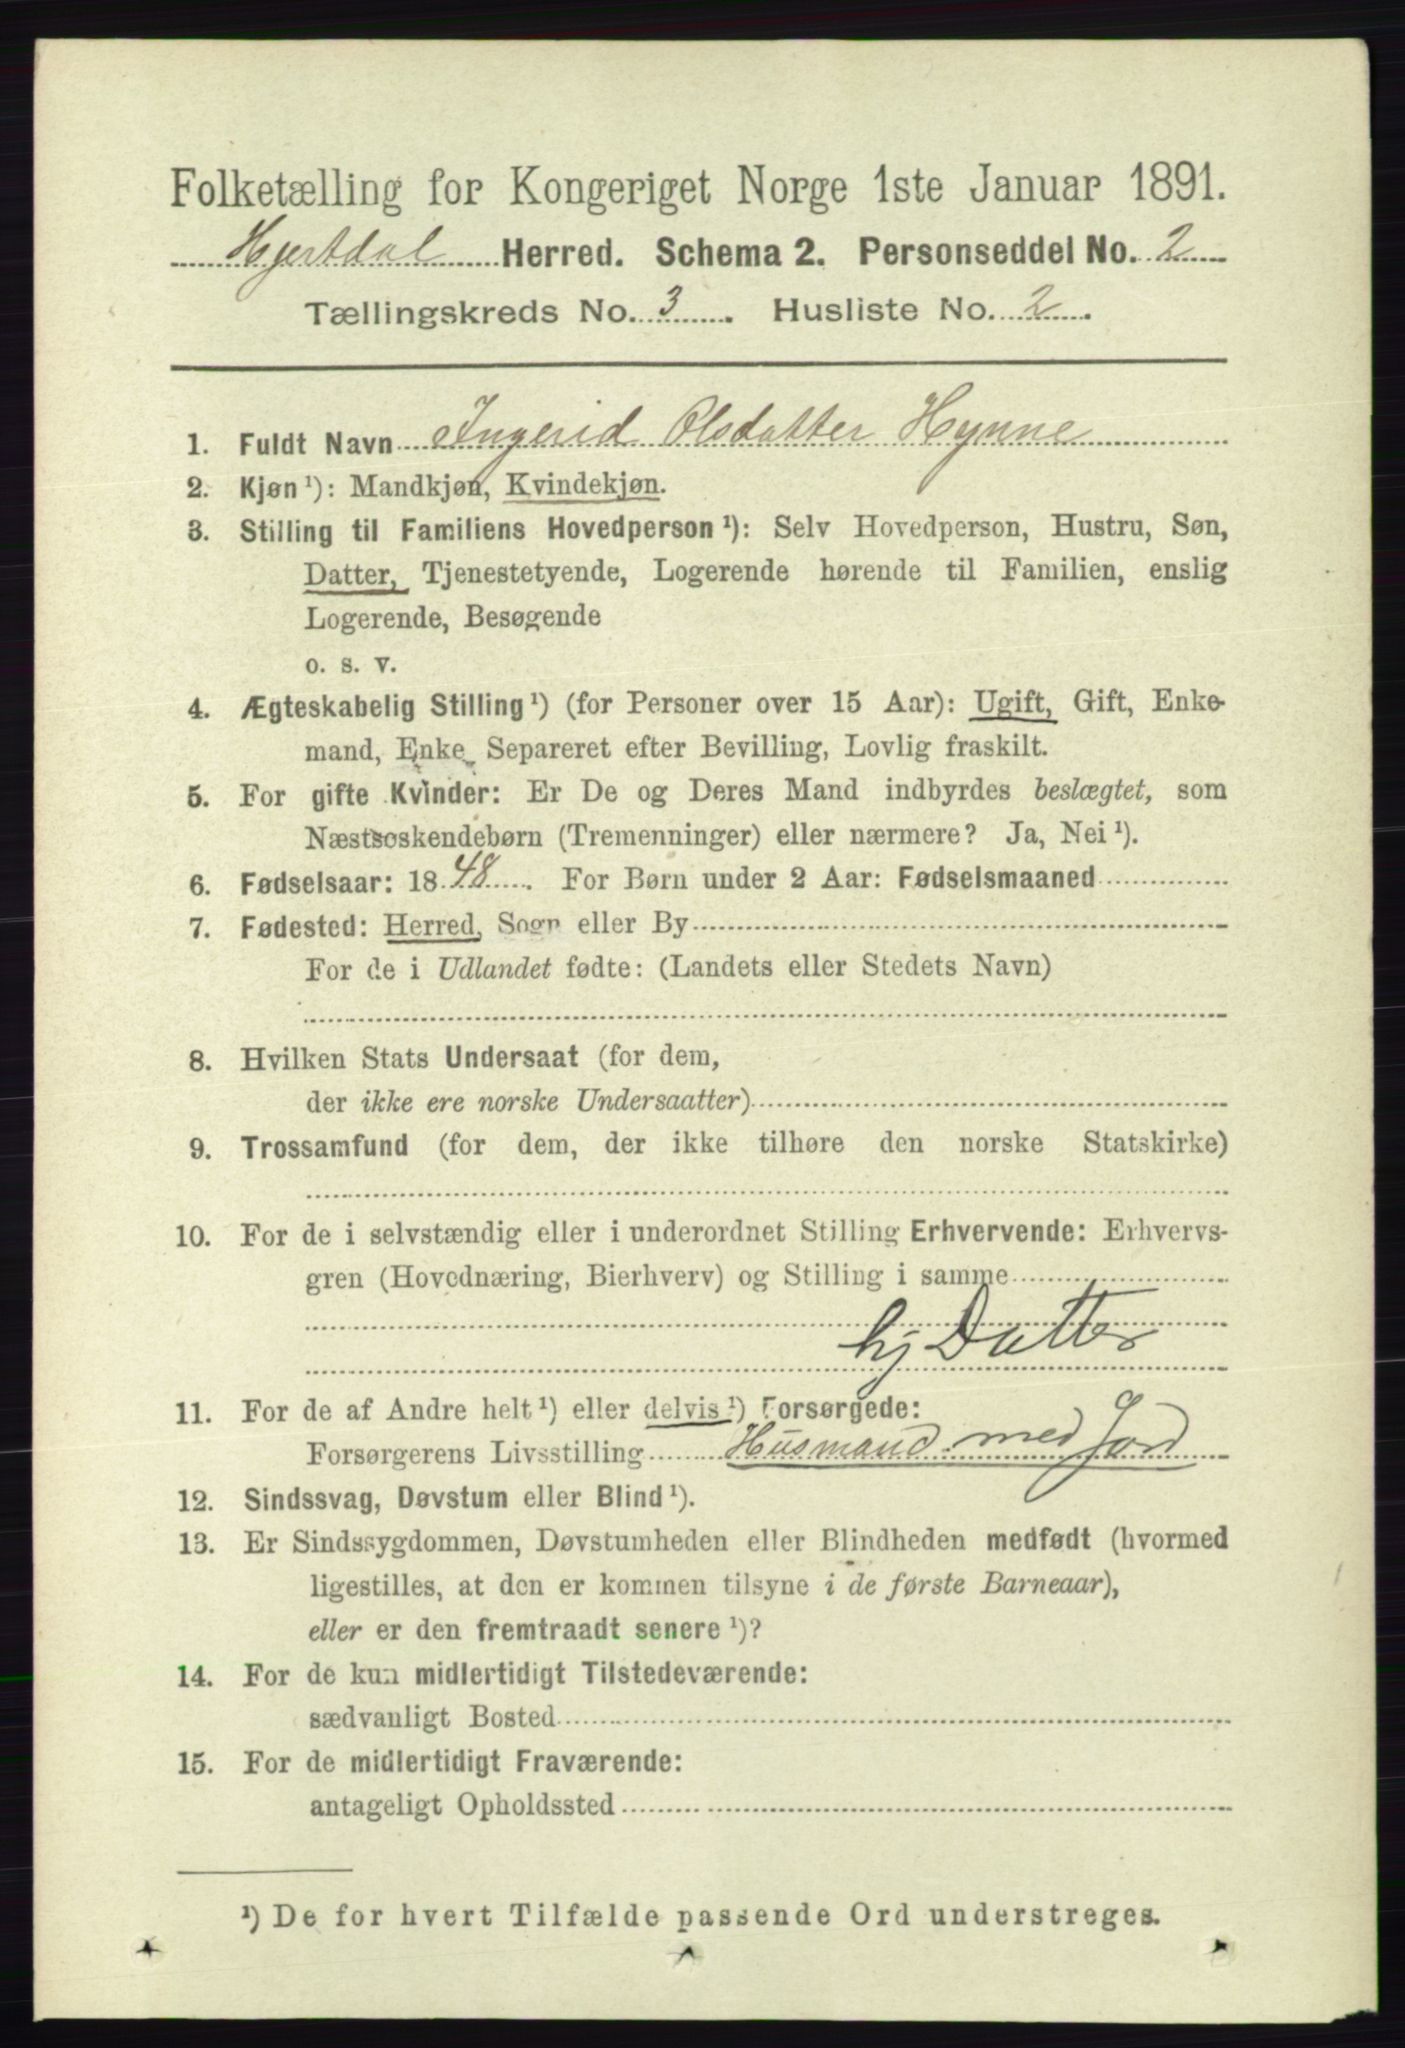 Folketælling for Kongeriget Norge 1ste Januar 1891.
Hjertdal Herred. Schema 2. Personseddel No. 2
Tællingskreds No. 3. Husliste No. 2.
1. Fuldt Navn Ingerid Olsdatter Hynne
2. Kjøn ¹): Mandkjøn, Kvindekjøn.
3. Stilling til Familiens Hovedperson ¹): Selv Hovedperson, Hustru, Søn,
Datter, Tjenestetyende, Logerende hørende til Familien, enslig
Logerende, Besøgende
o. s. v.
4. Ægteskabelig Stilling ¹) (for Personer over 15 Aar): Ugift, Gift, Enke-
mand, Enke, Separeret efter Bevilling, Lovlig fraskilt.
5. For gifte Kvinder: Er De og Deres Mand indbyrdes beslægtet, som
Næstsøskendebørn (Tremenninger) eller nærmere? Ja, Nei ¹).
6. Fødselsaar: 1848. For Børn under 2 Aar: Fødselsmaaned
7. Fødested: Herred, Sogn eller By
For de i Udlandet fødte: (Landets eller Stedets Navn)
8. Hvilken Stats Undersaat (for dem,
der ikke ere norske Undersaatter)
9. Trossamfund (for dem, der ikke tilhøre den norske Statskirke)
10. For de i selvstændig eller i underordnet Stilling Erhvervende: Erhvervs-
gren (Hovednæring, Bierhverv) og Stilling i samme
hj Datter
11. For de af Andre helt ¹) eller delvis ¹) Forsørgede:
Forsørgerens Livsstilling Husmand med Jord
12. Sindssvag, Døvstum eller Blind ¹).
13. Er Sindssygdommen, Døvstumheden eller Blindheden medfødt (hvormed
ligestilles, at den er kommen tilsyne i de første Barneaar),
eller er den fremtraadt senere ¹)?
14. For de kun midlertidigt Tilstedeværende:
sædvanligt Bosted
15. For de midlertidigt Fraværende:
antageligt Opholdssted
¹) De for hvert Tilfælde passende Ord understreges.